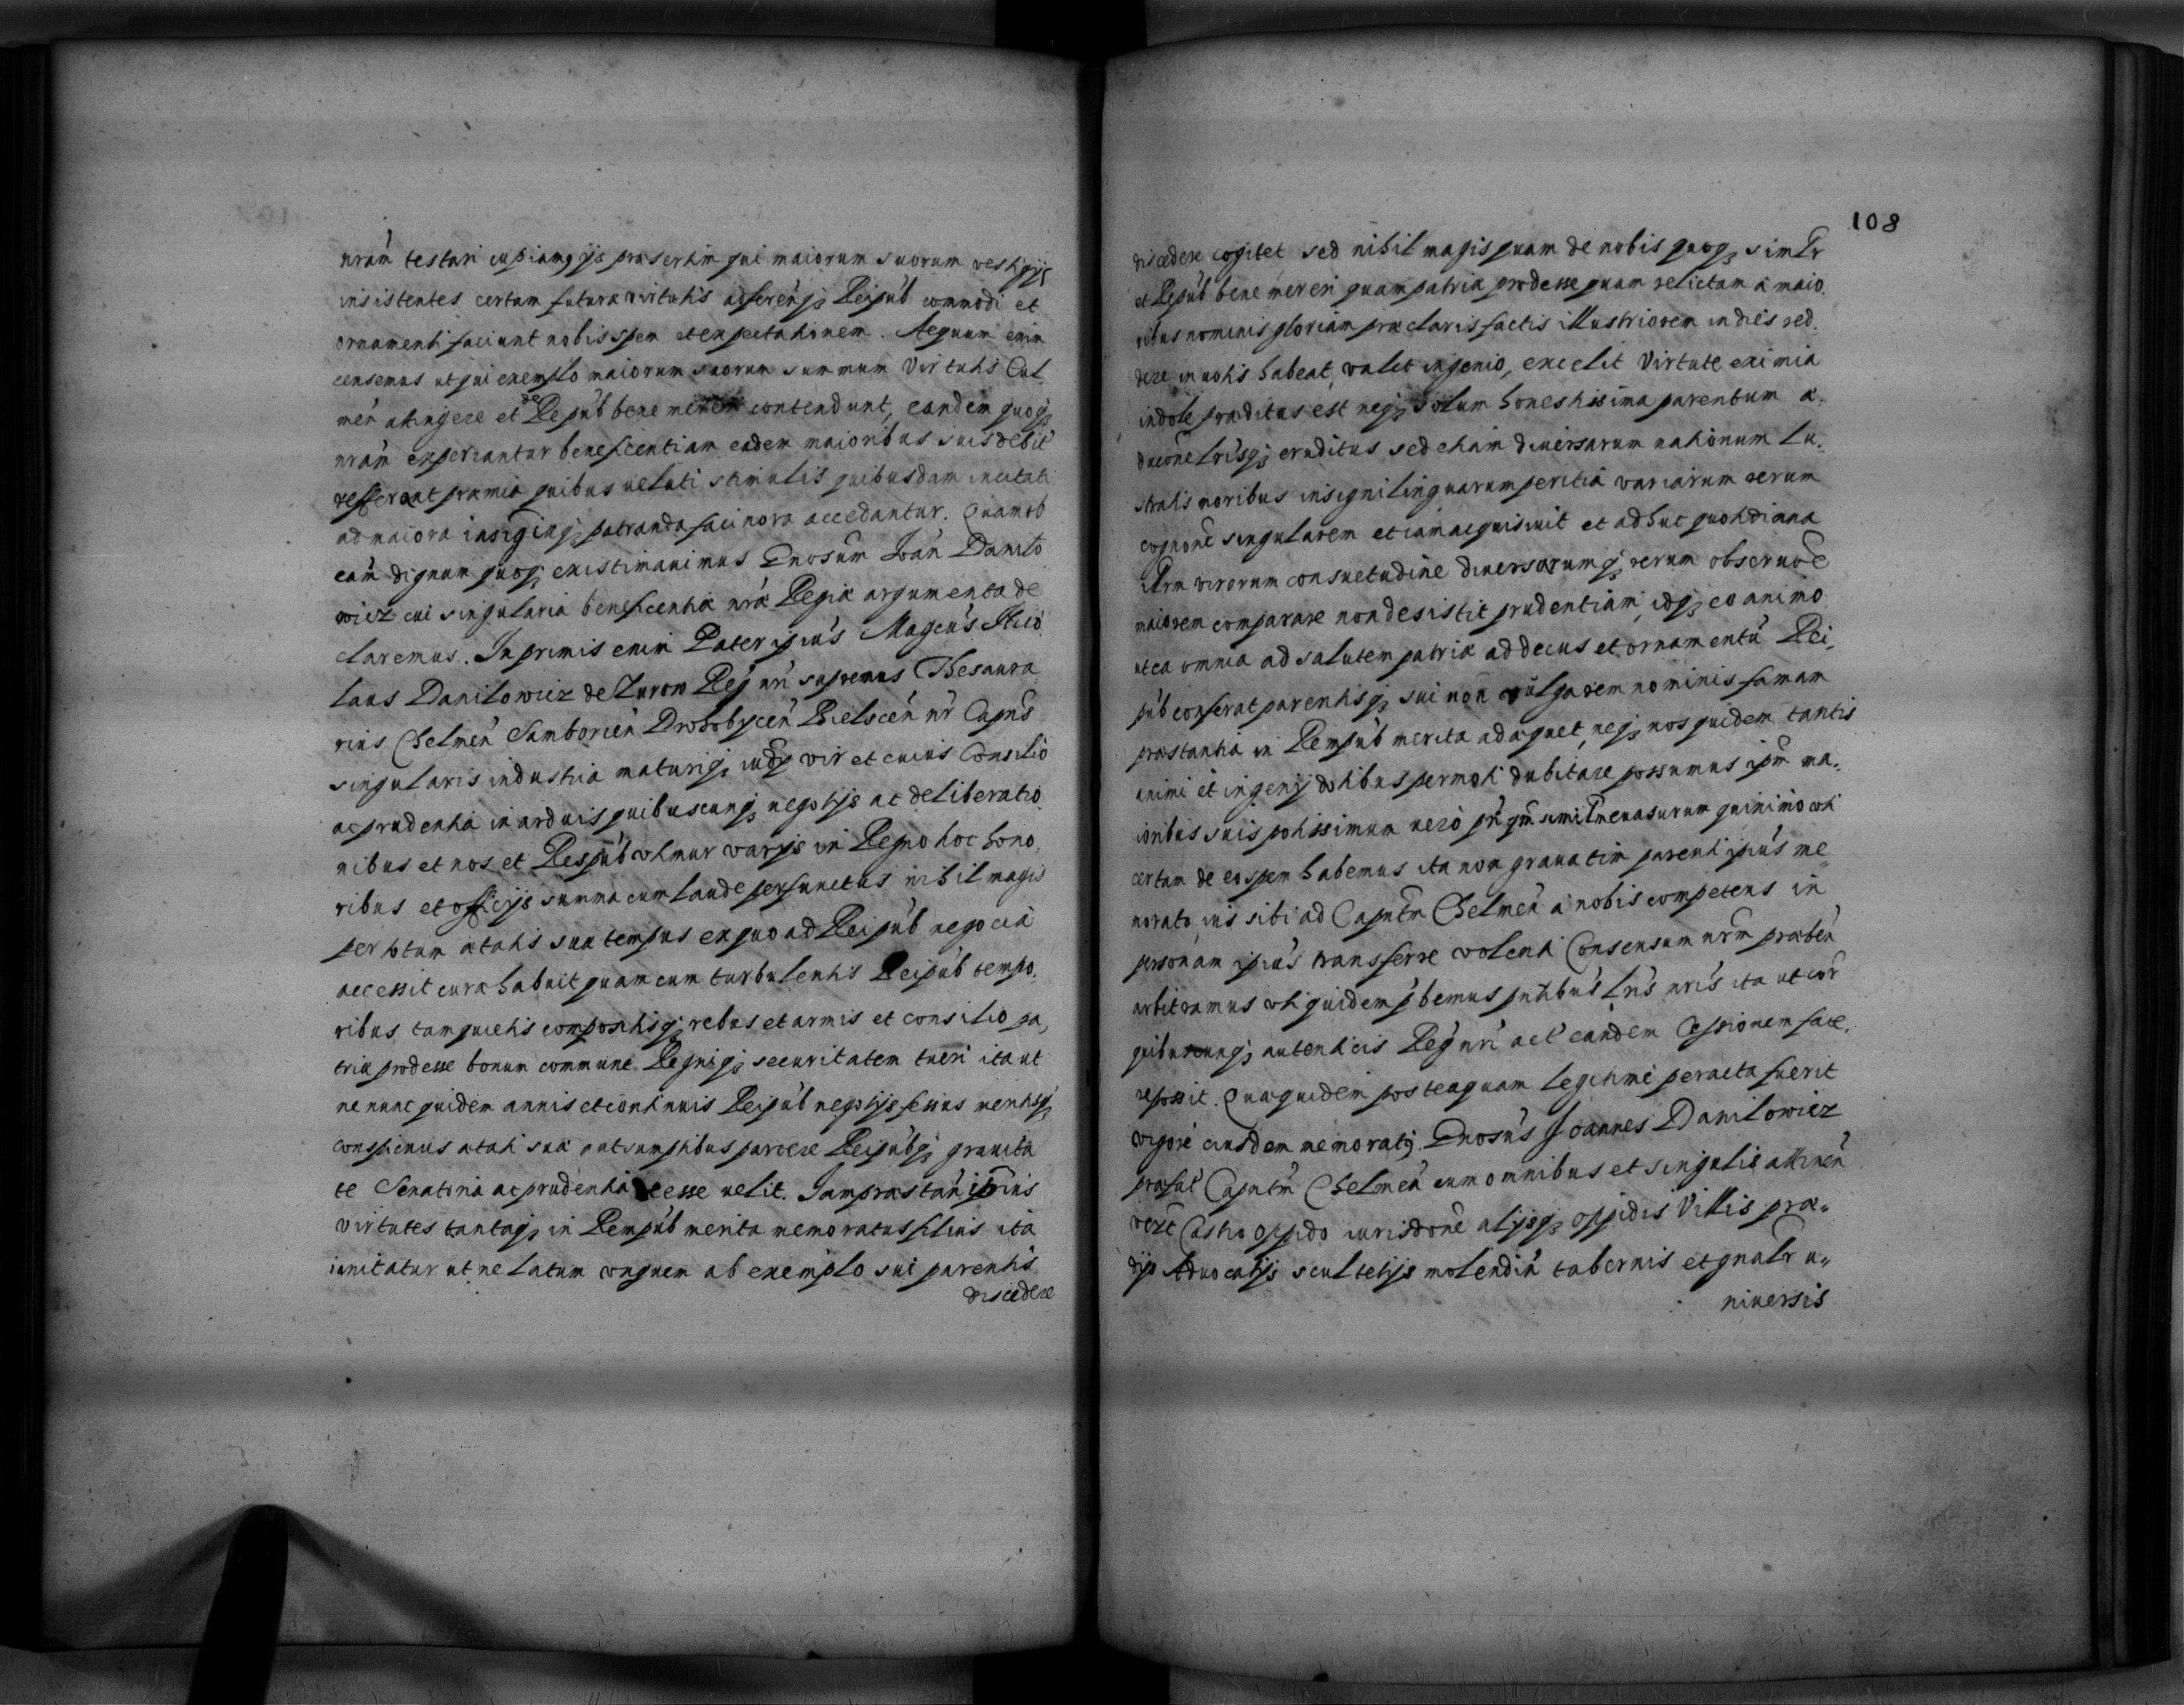 nram testari cupiamq ijs præsertim qui maiorum suorum vestigijs
insistentes certam futuræ virtutis afferendæq Reipub commodi et
ornamenti faciunt nobis spem et expectationem. Aequum enim
censemus ut qui exemplo maiorum suorum summum Virtutis Cul
men attingere et de Repub bene mereri contendunt, eandem quoq
nram experiantur beneficentiam eadem maioribus suis debit
refferant præmia quibus veluti stimulis quibusdam incitati
ad maiora insigniaq patranda facinora accedantur. Quamob
eam dignum quoq existimauimus Gnosum Ioan Danilo
wicz cui singularia beneficentiæ nræ Regiæ argumenta de
claremus. Inprimis enim Pater ipius Magcus Nico
laus Danilowicz de Zurow Reg nri supremus Thesaura
rius Chelmen Samborien Drohobycen Bielscen nr Capnus
singularis industria maturiq iudij vir et cuius Consilio
ac prudentia in arduis quibuscunq negotijs ac deliberatio
nibus et nos et Respub vtimur varijs in Regno hoc hono
ribus et officijs summa cum laude perfunctus nihil magis
per totum ætatis suæ tempus ex quo ad Reipub negocia
accessit curæ habuit quam cum turbulentis Reipub tempo
ribus tam quietis compositisq rebus et armis et consilio pa
triæ prodesse bonum commune Regniq securitatem tueri ita ut
ne nunc quidem annis et continuis Reipub negotijs fessus
conspicuus ætati suæ aut sumptibus parcere Reipubq grauita
te Senatoria ac prudentia deesse uelit. Iam præstan ipius
virtutes tantaq in Rempub merita memoratus filius ita
imitatur ut ne latum vnguem ab exemplo sui parentis
discedere
108
discedere cogitet sed nihil magis quam de nobis quoq simlr
et Repub bene mereri quam patriæ prodesse quam relictam a maio
ribus nominis gloriam præclaris factis illustriorem indies red
dere in uotis habeat, valet ingenio, excelit Virtute eximia
indole præditus est neq solum honestissima parentum e
ducone lrisq eruditus sed etiam diuersarum nationum lu
stratis moribus insigni linguarum peritia variarum rerum
cognone singularem etiam acquisiuit et adhuc quotidiana
virorum consuetudine diuersarumq rerum obseruone
maiorem comparare non desistit prudentiam, idq eo animo
ut ea omnia ad salutem patriæ ad decus et ornamentu Rei
pub conferat parentisq sui non vulgarem nominis famam
præstantia in Rempub merita adæquet, neq nos quidem tantis
animi et ingenij dotibus permoti dubitare possumus ipm ma
ioribus suis potissimum uero simillm euasurum quinimo vti
certam de eo spem habemus ita non grauatim parenti ipius me
morato ius sibi ad Capntm Chelmen a nobis competens in
personam ipius transferre volenti Consensum nrm præben
arbitramus vti quidem pbemus pntibus lris nris ita ut cor
quibuscunq autenticis Reg nri act eandem Cessionem face
re possit. Quæ quidem posteaquam legitime peracta fuerit
vigore eiusdem memorat Gnosus Joannes Danilowicz
præfat Capntm Chelmen cum omnibus et singulis attinen
vczt Castro oppido iurisdone alijsq oppidis Villis præ
dijs Aduocatijs scultetijs molendin tabernis et gnalr u
niuersis